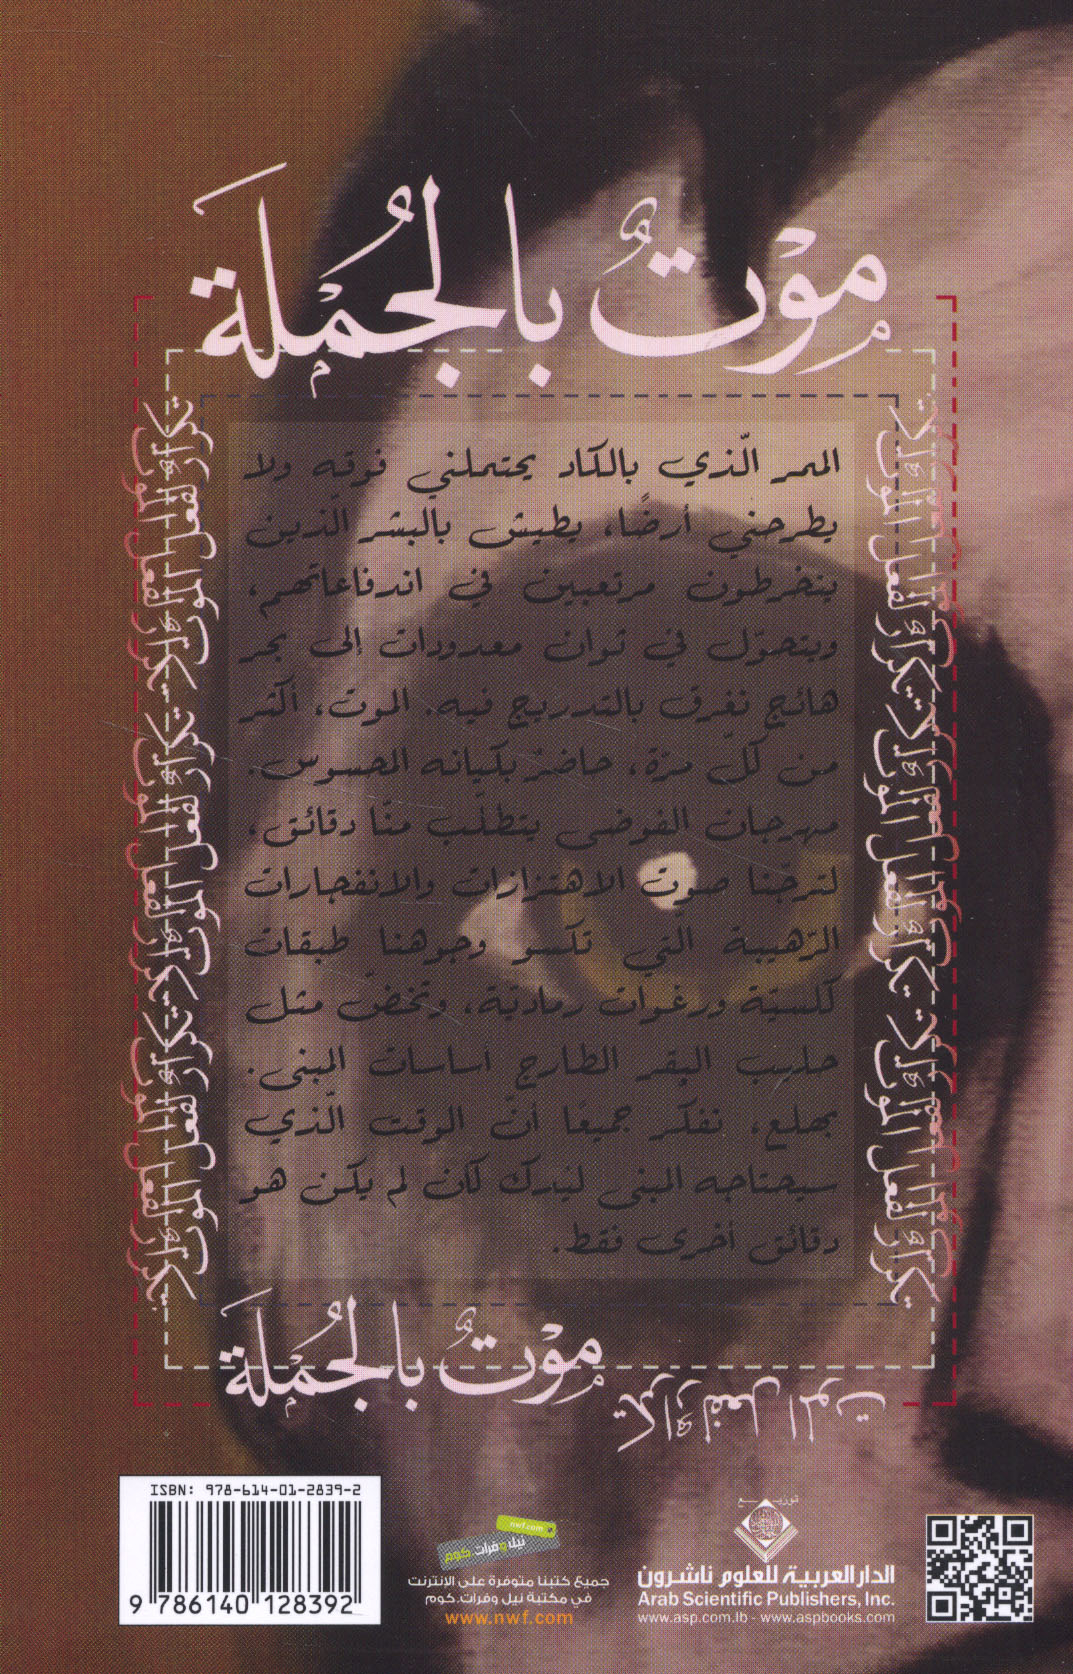 مَوْتٌ بالجُمْلَة
الممر الّذي بالكاد يحتملني فوقه ولا
يطرحني أرضًا، يطيش بالبشر الّذين
ينخرطون مرتعبين في اندفاعاتهم،
ويتحوّل في ثوان معدودات إلى بحر
هائج نغرق بالتدريج فيه. الموت، أكثر
من كلّ مرّة، حاضرٌ بكيانه المحسوس.
مهرجان الفوضى يتطلّب منّا دقائق،
لترجّنا صوت الاهتزازات والانفجارات
الرّهيبة الّتي تكسو وجوهنا طبقات
كلسيّة ورغوات رماديّة، وتخضّ مثل
حليب البقر الطازج أساسات المبنى.
بهلع، نفكر جميعًا أنّ الوقت الّذي
سيحتاجه المبنى ليندكّ كان لم يكن هو
دقائق أخرى فقط.
مَوْتٌ بالجُمْلَة
ISBN: 978-614-01-2839-2
9 786140 128392
nwf.com
نيل وفرات.كوم
جميع كتبنا متوفرة على الإنترنت
في مكتبة نيل وفرات.كوم
www.nwf.com
توزيع
الدار العربية للعلوم ناشرون
Arab Scientific Publishers, Inc.
www.asp.com.lb - www.aspbooks.com